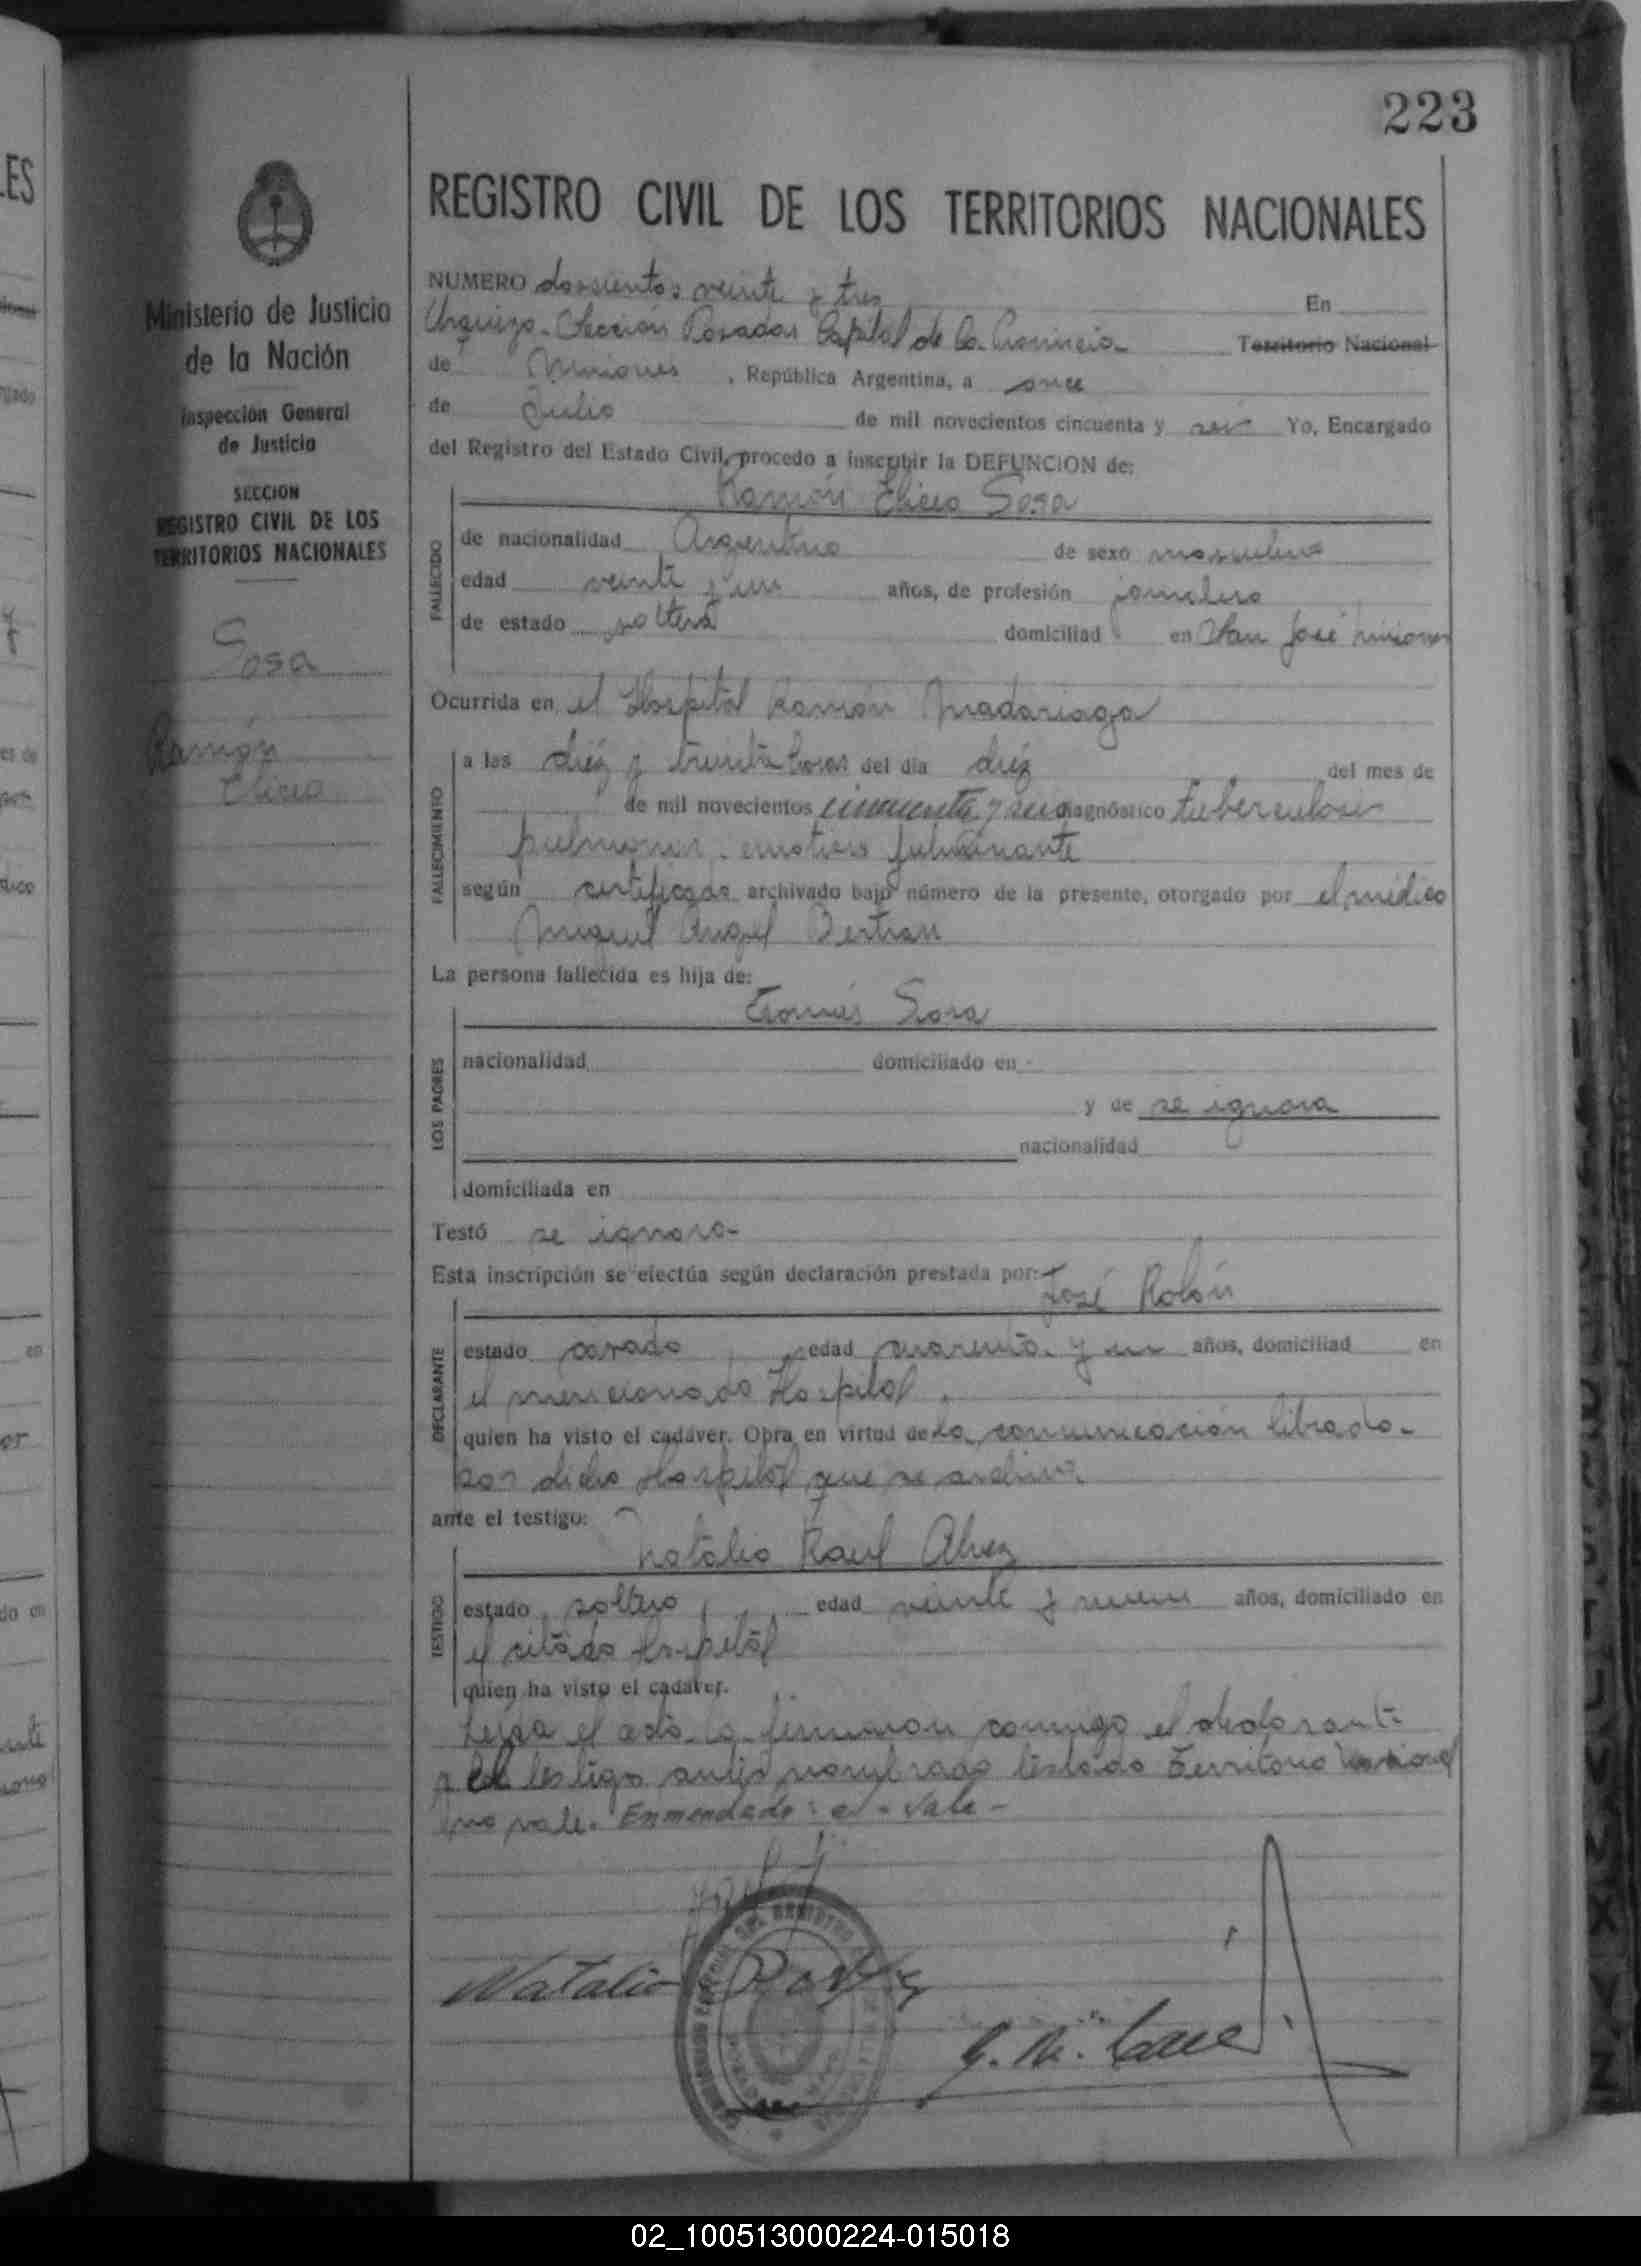 223
REGISTRO CIVIL DE LOS TERRITORIOS NACIONALES
Ministerio de Justicia
de la Nación
Inspección General
de Justicia
SECCION
REGISTRO CIVIL DE LOS
TERRITORIOS NACIONALES
Sosa
Ramón
NUMERO doscientos veinte y tres En
Urquiza - Sección Posadas Capital de la Provincia Territorio Nacional
de Misiones, República Argentina, a once
de Julio de mil novecientos cincuenta y seis Yo, Encargado
del Registro del Estado Civil, procedo a inscribir la DEFUNCION de:
Ramón Sosa
FALLECIDO
de nacionalidad Argentino de sexo masculino
edad veinte y un años, de profesión jornalero
de estado soltero domiciliad en San José Misiones
Ocurrida en el Hospital Ramón Madariaga
FALLECIMIENTO
a las diéz y treinta horas del día diéz del mes de
de mil novecientos cincuenta y seis diagnóstico tuberculosis
pulmonar fulminante
según certificado archivado bajo número de la presente, otorgado por el médico
Miguel Angel Bertran
La persona fallecida es hija de:
Tomás Sosa
LOS PADRES
nacionalidad domiciliado en
y de se ignora
nacionalidad
domiciliada en
Testó se ignora
Esta inscripción se efectúa según declaración prestada por:
José Rolón
DECLARANTE
estado casado edad cuarenta y un años, domiciliad en
el mencionado Hospital
quien ha visto el cadáver. Obra en virtud de la comunicación librada
por dicho Hospital que se archiva
ante el testigo:
Natalio Raul Alvez
TESTIGO
estado soltero edad veinte y nueve años, domiciliado en
el citado Hospital
quien ha visto el cadáver.
Leída el acta la firmaron conmigo el declarante
y el testigo antes nombrado testado Territorio Nacional
no vale. Enmendado: e - Vale -
Natalio
02_100513000224-015018